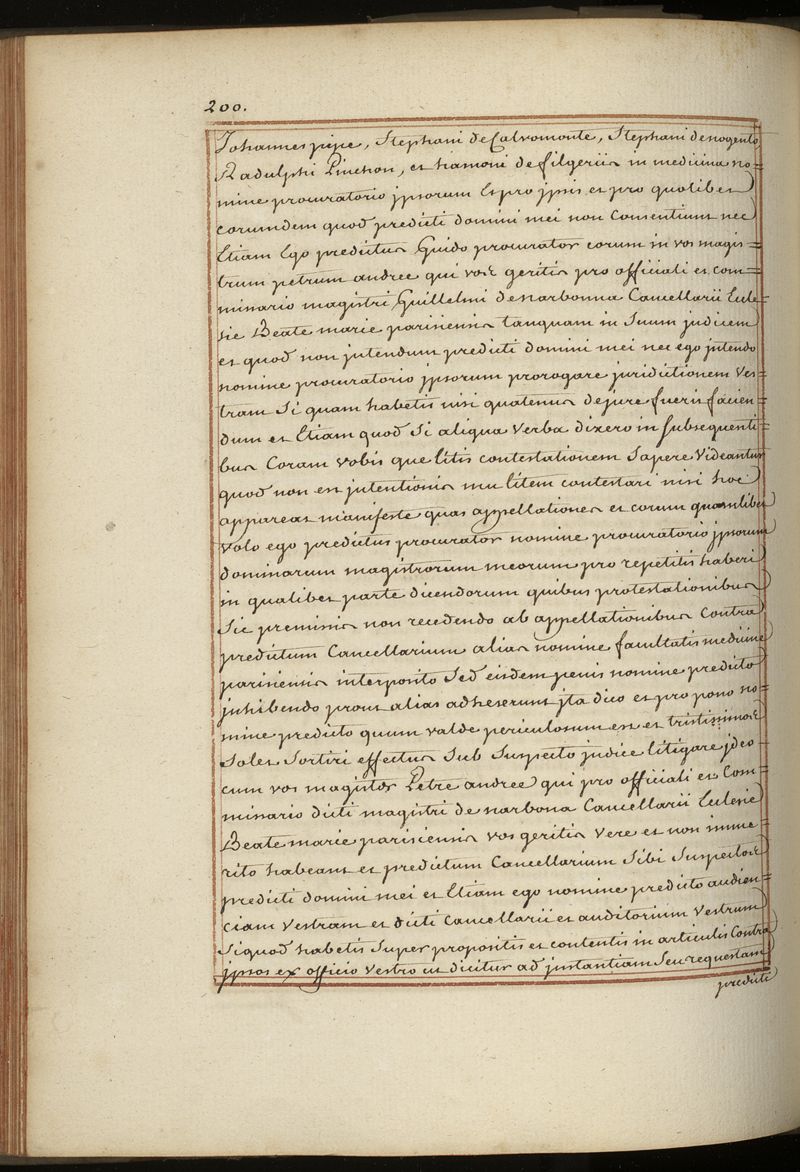 200.
Johannes pipe, Stephani de Calvomonte, Stephani denogento
Radulphi Pinchon, et hamoni de filgeriis in medicina no=
mine procuratorio jpsorum Et pro jpsis et pro quolibet
eorumdem quod predicti domini mei non Consentiunt nec
Etiam Ego predictus Guido procurator eorum in vos magis=
trum petrum andree qui vos geritis pro officiali et com=
missario magistri Guillelmi denarbonna Cancellarii Eccle=
sie Beate marie parisiensis tanquam in Suum judicem
et quod non jntendunt predicti domini mei nec ego jntendo
nomine procuratorio jpsorum prorogare juridictionem Ves=
tram Si quam habetis nisi quatenus dejure fuerit facien=
dum et Etiam quod Si aliqua Verba dixero in Subsequenti=
bus Coram vobis que litis contestationem Sapere Videantur
quod non est jntentionis mee litem contestari nisi hoc
appareat manifeste quas appellationes et eorum quamlibet
Volo ego predictus procurator nomine procuratorio jpsorum
dominorum magistrorum meorum pro repetitis haberi
in qualibet parte dicendorum quibus protestationibus
Sic premissis non recedendo ab appellationibus Contra
predictum Cancellarium alias nomine facultatis medicine
parisiensis interposito Sed eisdem penis nomine predicto
jnhibendo prout alias adheserunt jta dico et pro pono no=
mine predicto quum valde periculosum est et tristissimos
Solet Sortiri effectus Sub Suspecto judice litigare jdeo
cum vos magister Petre andree qui pro officiali et Com=
missario dicti magistri de narbona Cancellarii Eclesie
Beate marie parisiensis vos geritis Vere et non imme=
rito habeant et predictum Cancellarium Sibi Suspectos
predicti domini mei et Etiam ego nomine predicto audien=
ciam Vestram et dicti Cancellarii et auditorium Vestrum
Siquod habetis Super propositis et contentis in articulis Contra
jpsos ex officio Vestro ut dicitur ad jnstantiam Seu requestam
predicti